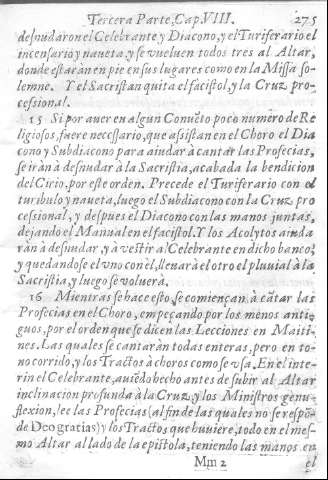 Tercera Parte, Cap. VIII. 275
desnudaron el Celebrante y Diacono, y el Turiferario el
incensario y naueta, y se vueluen todos tres al Altar,
donde estaràn en pie en sus lugares como en la Missa so-
lemne. Y el Sacristan quita el facistol, y la Cruz pro-
cessional.
15 Si por auer en algun Conuẽto poco numero de Re
ligiosos fuere necessario, que assistan en el Choro el Dia
cono y Subdiacono para aiudar à cantar las Profecias,
se iràn à desnudar à la Sacristia, acabada la bendicion
del Cirio, por este orden. Precede el Turiferario con el
turibulo y naueta, luego el Subdiacono con la Cruz pro
cessional, y despues el Diacono con las manos juntas,
dejãndo el Manual en el facistol. Y los Acolytos aiuda
ràn à desnudar, y à vestir al Celebrante en dicho banco;
y quedandose el vno con èl, lleuarà el otro el pluuial à la
Sacristia, y luego se voluerà.
16 Mientras se hace esto, se comiençan à cãtar las
Profecias en el Choro, empeçando por los menos anti-
guos, por el orden que se dicen las Lecciones en Maiti-
nes. Las quales se cantaràn todas enteras, pero en to-
no corrido, y los Tractos à choros como se vsa. En el inte-
rin el Celebrante, auiẽdo hecho antes de subir al Altar
inclinacion profunda à la Cruz, y los Ministros genu-
flexion, lee las Profecias (al fin de las quales no se respõ-
de Deo gratias) y los Tractos que huuiere, todo en el mes-
mo Altar al lado de la epistola, teniendo las manos en
Mm 2 el